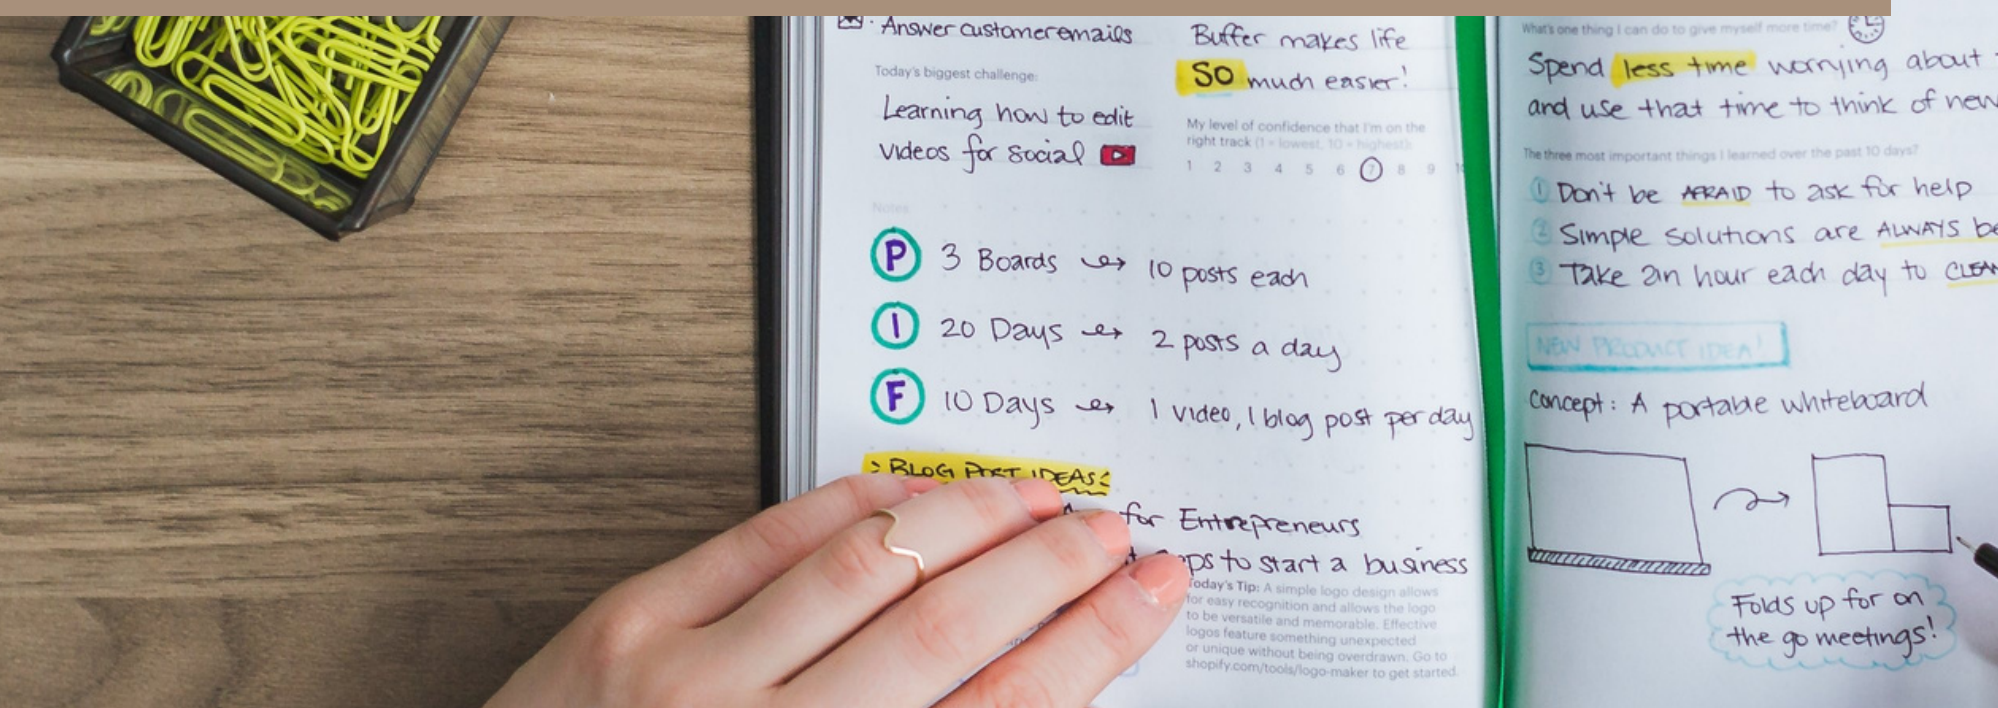 Answer customer emails
Today's biggest challenge:
Learning how to edit
videos for social
Buffer makes life
SO much easier!
My level of confidence that I'm on the
right track (1 = lowest, 10 = highest):
1 2 3 4 5 6 7 8 9
Notes
P 3 Boards → 10 posts each
I 20 Days → 2 posts a day
F 10 Days → 1 video, 1 blog post per day
BLOG POST IDEAS
for Entrepreneurs
to start a business
Today's Tip: A simple logo design allows
for easy recognition and allows the logo
to be versatile and memorable. Effective
logos feature something unexpected
or unique without being overdrawn. Go to
shopify.com/tools/logo-maker to get started.
What's one thing I can do to give myself more time?
Spend less time worrying about
and use that time to think of new
The three most important things I learned over the past 10 days?
1 Don't be AFRAID to ask for help
2 Simple solutions are ALWAYS
3 Take an hour each day to
NEW PRODUCT IDEA!
Concept: A portable whiteboard
Folds up for on
the go meetings!